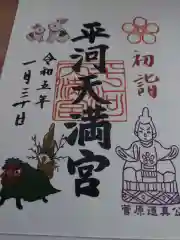 初詣
平河天満宮
令和五年
一月三十日
菅原道真公